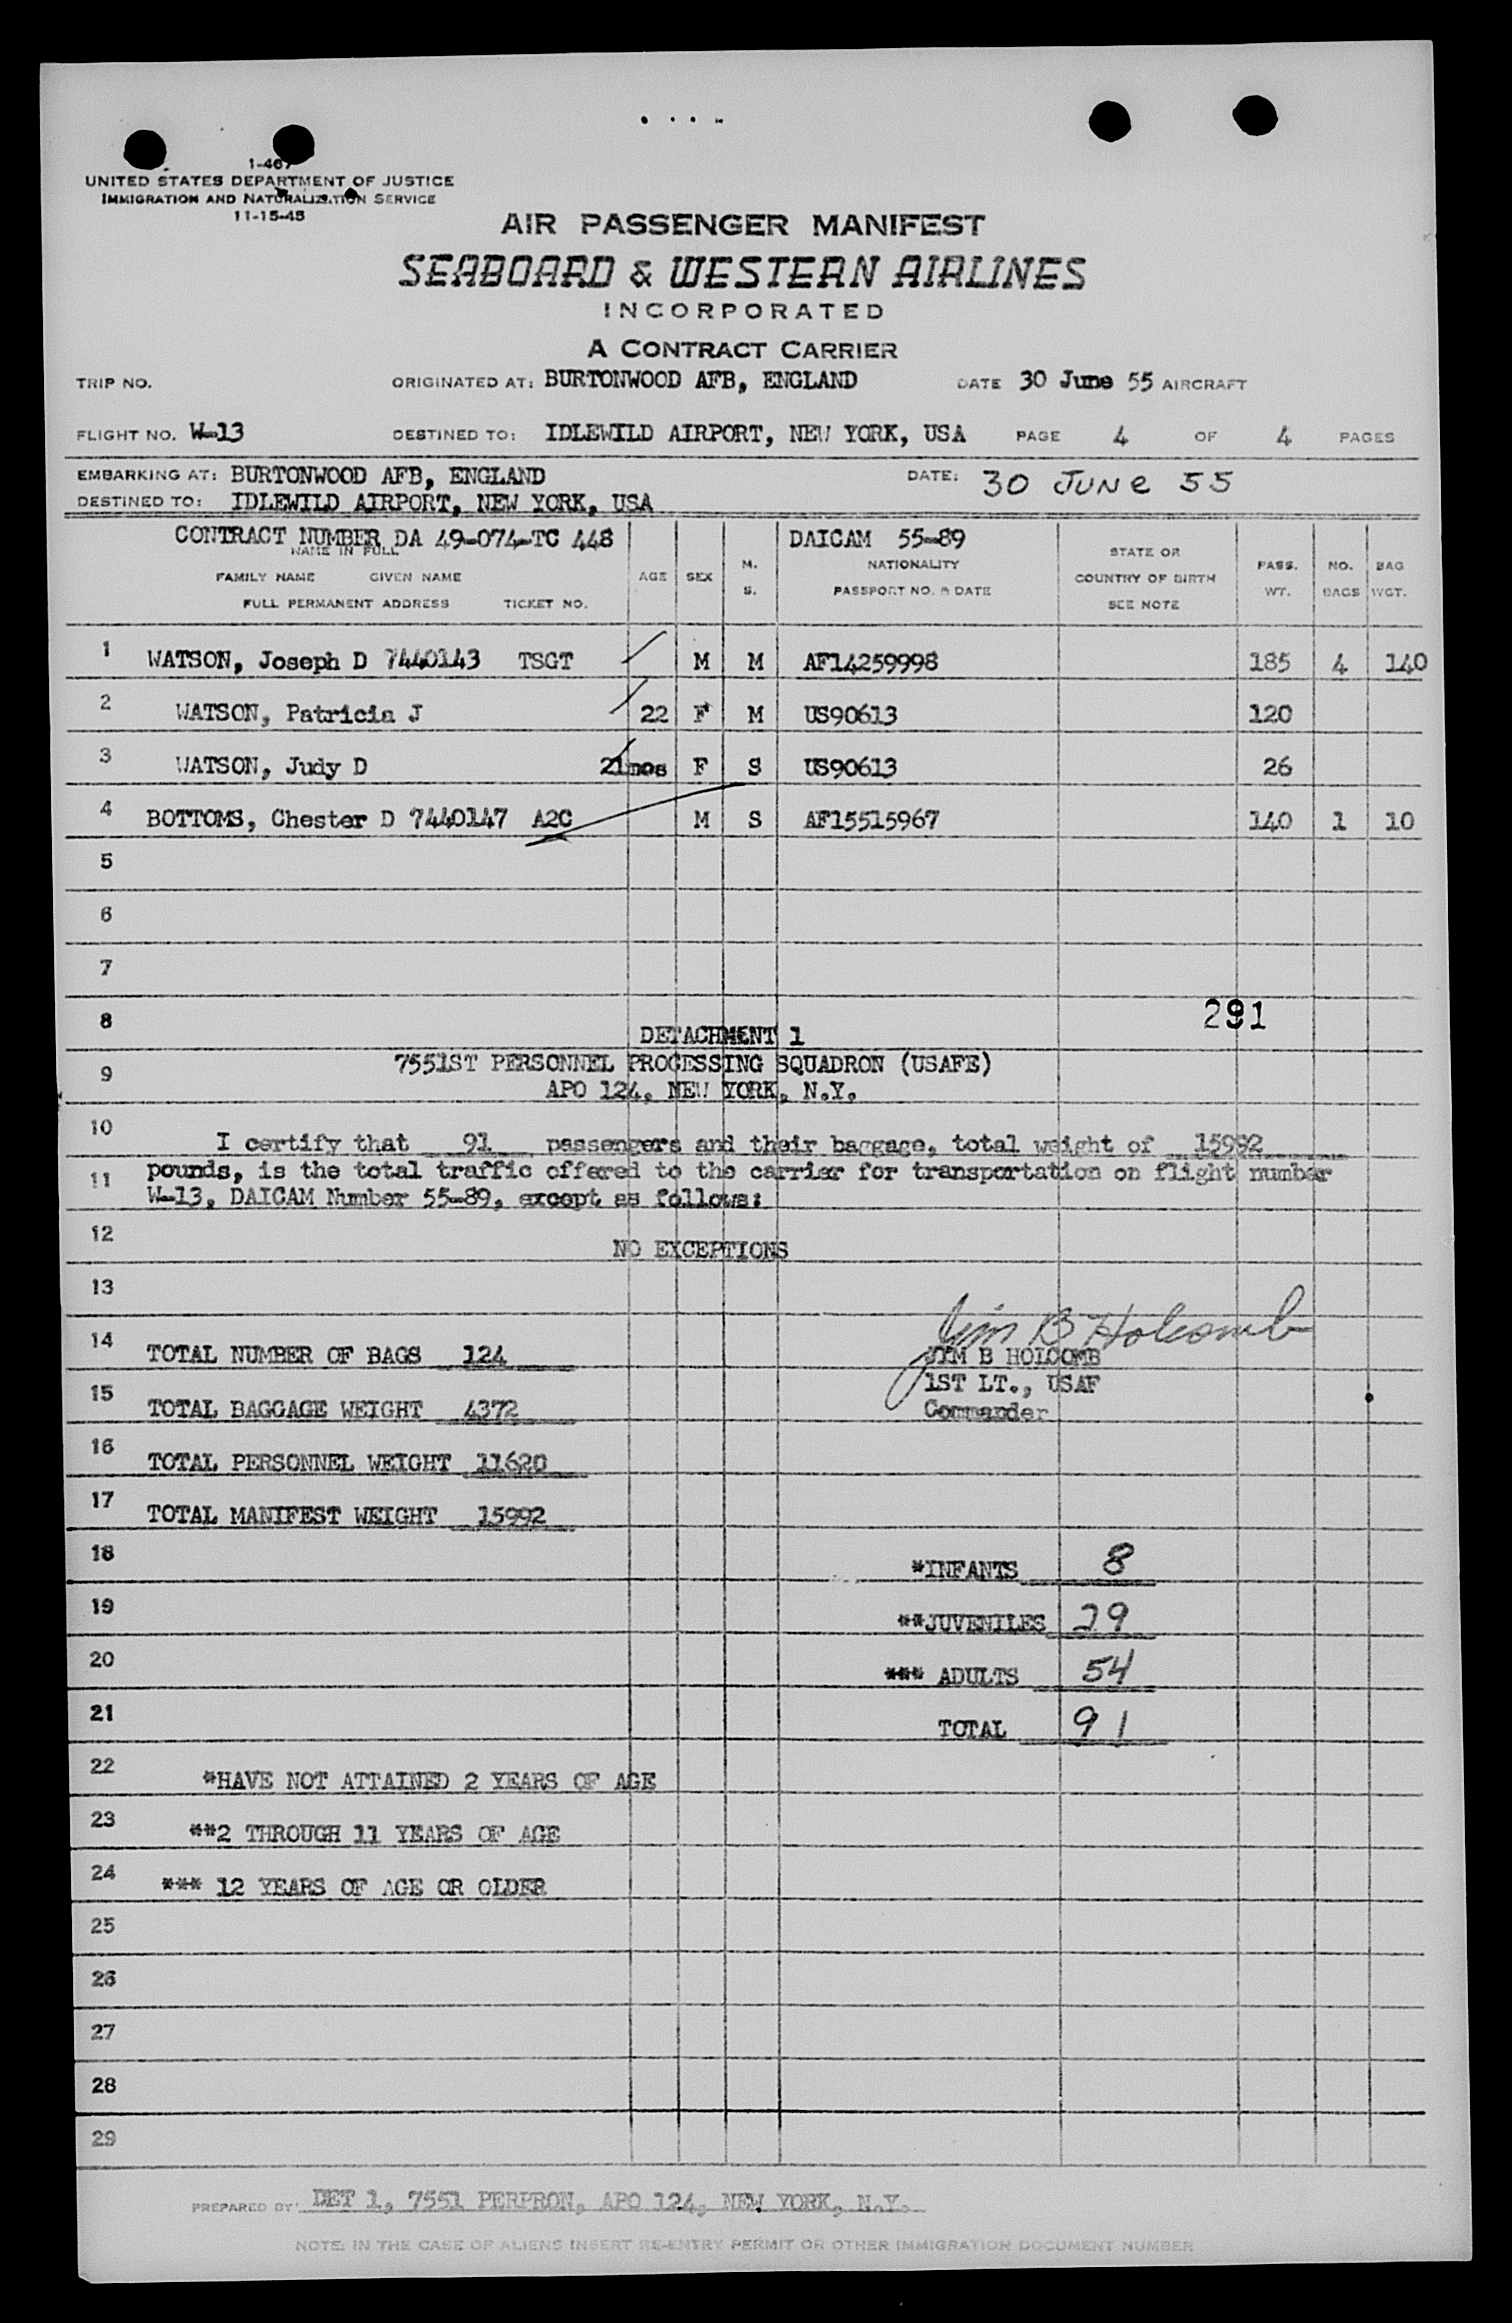 1-467
UNITED STATES DEPARTMENT OF JUSTICE
IMMIGRATION AND NATURALIZATION SERVICE
11-15-45
AIR PASSENGER MANIFEST
SEABOARD & WESTERN AIRLINES
INCORPORATED
A CONTRACT CARRIER
TRIP NO. ORIGINATED AT: BURTONWOOD AFB, ENGLAND DATE 30 June 55 AIRCRAFT
FLIGHT NO. W-13 DESTINED TO: IDLEWILD AIRPORT, NEW YORK, USA PAGE 4 OF 4 PAGES
EMBARKING AT: BURTONWOOD AFB, ENGLAND DATE: 30 JUNE 55
DESTINED TO: IDLEWILD AIRPORT, NEW YORK, USA
CONTRACT NUMBER DA 49-074-TC 448 DAICAM 55-89
NAME IN FULL M. NATIONALITY STATE OR PASS. NO. BAG
FAMILY NAME GIVEN NAME AGE SEX S. PASSPORT NO. & DATE COUNTRY OF BIRTH WT. BAGS WGT.
FULL PERMANENT ADDRESS TICKET NO. SEE NOTE
1 WATSON, Joseph D 7440143 TSGT M M AF14259998 185 4 140
2 WATSON, Patricia J 22 F M US90613 120
3 WATSON, Judy D 21mos F S US90613 26
4 BOTTOMS, Chester D 7440147 A2C M S AF15515967 140 1 10
5
6
7
8 291
DETACHMENT 1
9 7551ST PERSONNEL PROCESSING SQUADRON (USAFE)
APO 124, NEW YORK, N.Y.
10 I certify that 91 passengers and their baggage, total weight of 15992
11 pounds, is the total traffic offered to the carrier for transportation on flight number
W-13, DAICAM Number 55-89, except as follows:
12 NO EXCEPTIONS
13 Jim B Holcomb
14 TOTAL NUMBER OF BAGS 124 JIM B HOLCOMB
15 1ST LT., USAF
TOTAL BAGGAGE WEIGHT 4372 Commander
16 TOTAL PERSONNEL WEIGHT 11620
17 TOTAL MANIFEST WEIGHT 15992
18 *INFANTS 8
19 **JUVENILES 29
20 *** ADULTS 54
21 TOTAL 91
22 *HAVE NOT ATTAINED 2 YEARS OF AGE
23 **2 THROUGH 11 YEARS OF AGE
24 *** 12 YEARS OF AGE OR OLDER
25
26
27
28
29
PREPARED BY: DET 1, 7551 PERPRON, APO 124, NEW YORK, N.Y.
NOTE: IN THE CASE OF ALIENS INSERT RE-ENTRY PERMIT OR OTHER IMMIGRATION DOCUMENT NUMBER